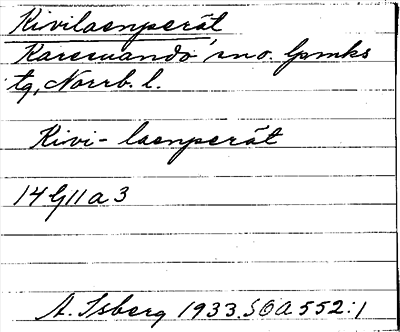 Kivilaenperät
Karesuando sno. lpmks
tg, Norrb. l.
Kivi-laenperät
14 G 11 a 3
A. Isberg 1933. SOA 552:1